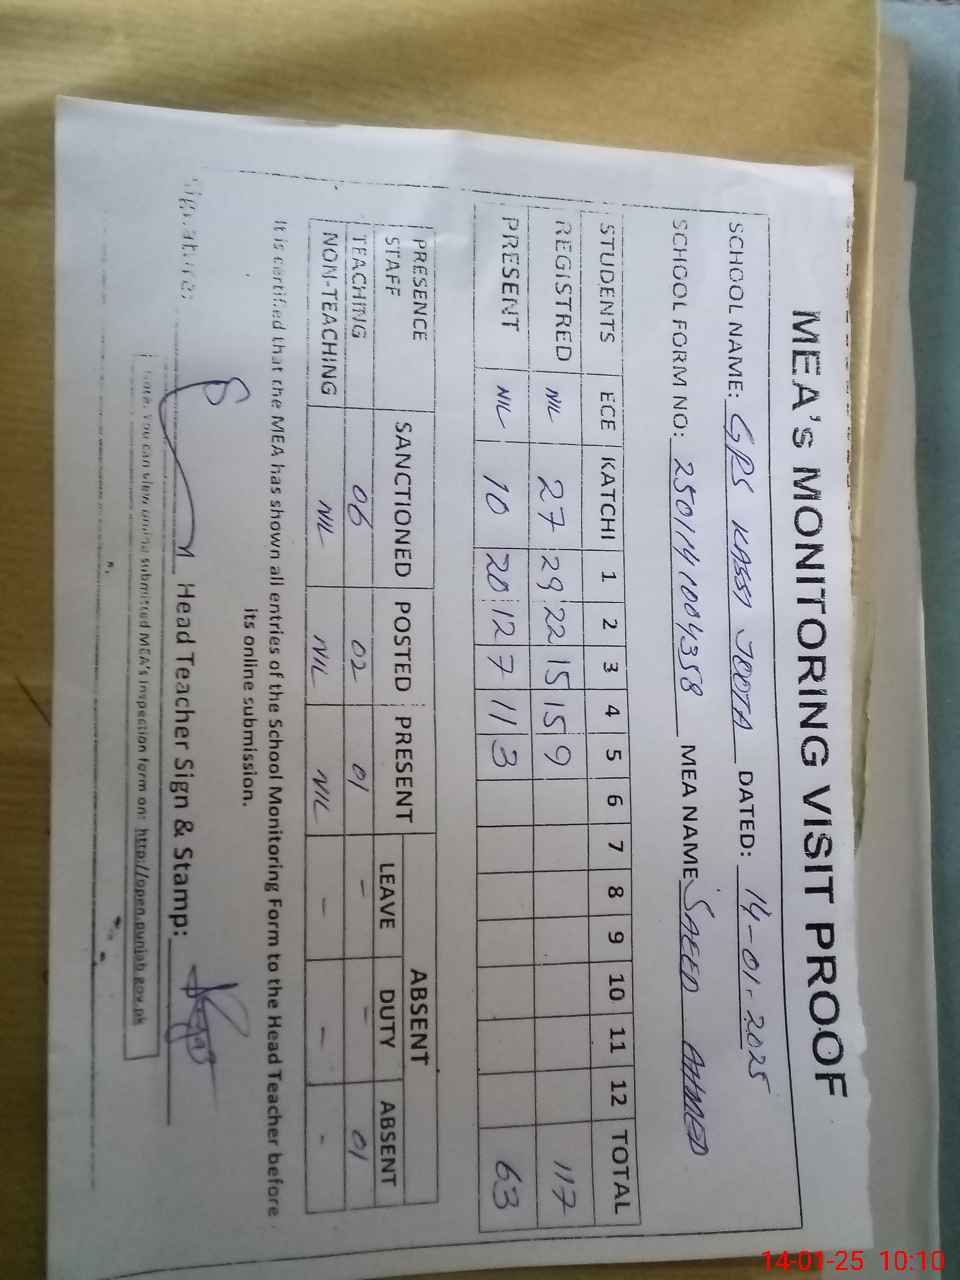 MEA's MONITORING VISIT PROOF
SCHOOL NAME: GPS KASSI JOOTA DATED: 14-01-2025
SCHOOL FORM NO: 2501141004358 MEA NAME SAEED AHMED
STUDENTS ECE KATCHI 1 2 3 4 5 6 7 8 9 10 11 12 TOTAL
REGISTRED NIL 27 29 22 15 15 9 117
PRESENT NIL 10 20 12 7 11 3 63
PRESENCE STAFF SANCTIONED POSTED PRESENT ABSENT
LEAVE DUTY ABSENT
TEACHING 06 02 01 - - 01
NON-TEACHING NIL NIL NIL - - -
It is certified that the MEA has shown all entries of the School Monitoring Form to the Head Teacher before
its online submission.
Signature: Head Teacher Sign & Stamp:
Note: You can view online submitted MEA's inspection form on: http://open.punjab.gov.pk
14-01-25 10:10